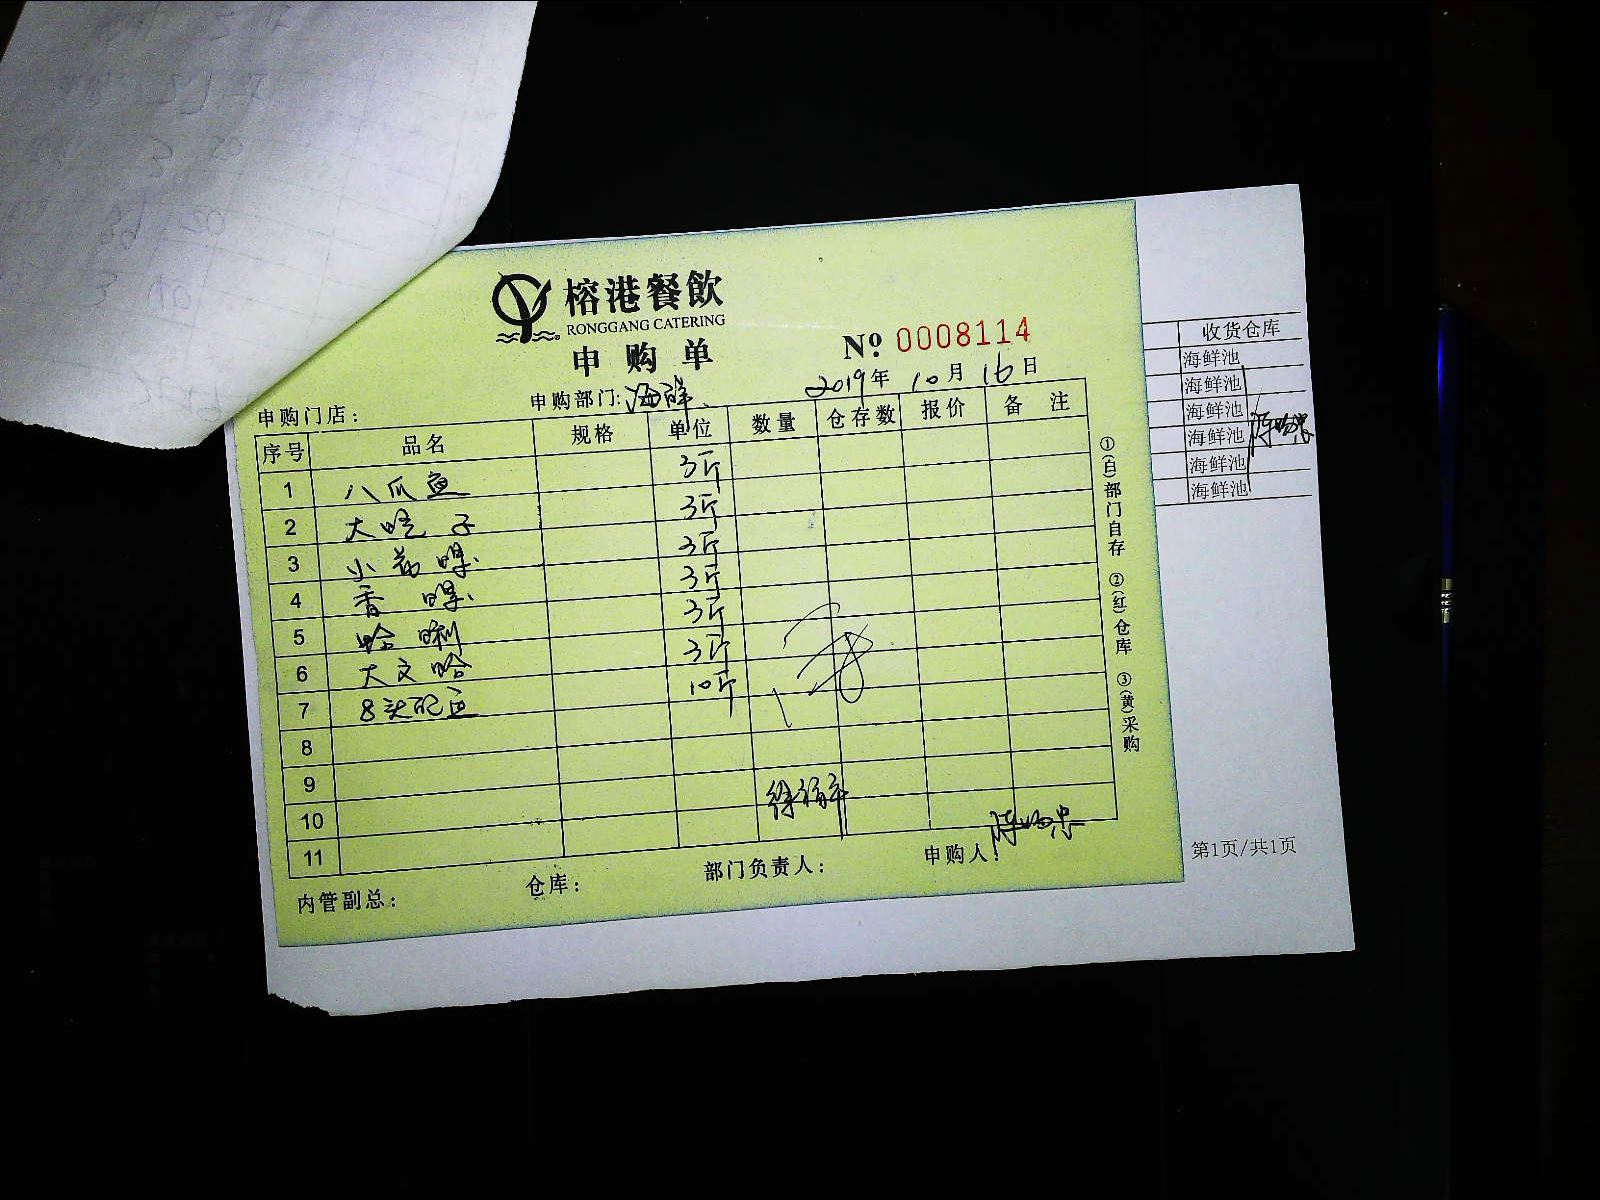 榕港餐飲
RONGGANG CATERING
申购单
№ 0008114
申购门店：
申购部门：海鲜
2019年10月16日
序号 品名 规格 单位 数量 仓存数 报价 备注
1 八爪鱼 3斤
2 大蛏子 3斤
3 小花螺 3斤
4 香螺 3斤
5 蛤蜊 3斤
6 大文蛤 3斤
7 8头 10斤
8
9
10
11
内管副总：
仓库：
部门负责人：
申购人：
①(白)部门自存 ②(红)仓库 ③(黄)采购
收货仓库
海鲜池
海鲜池
海鲜池
海鲜池
海鲜池
海鲜池
第1页/共1页